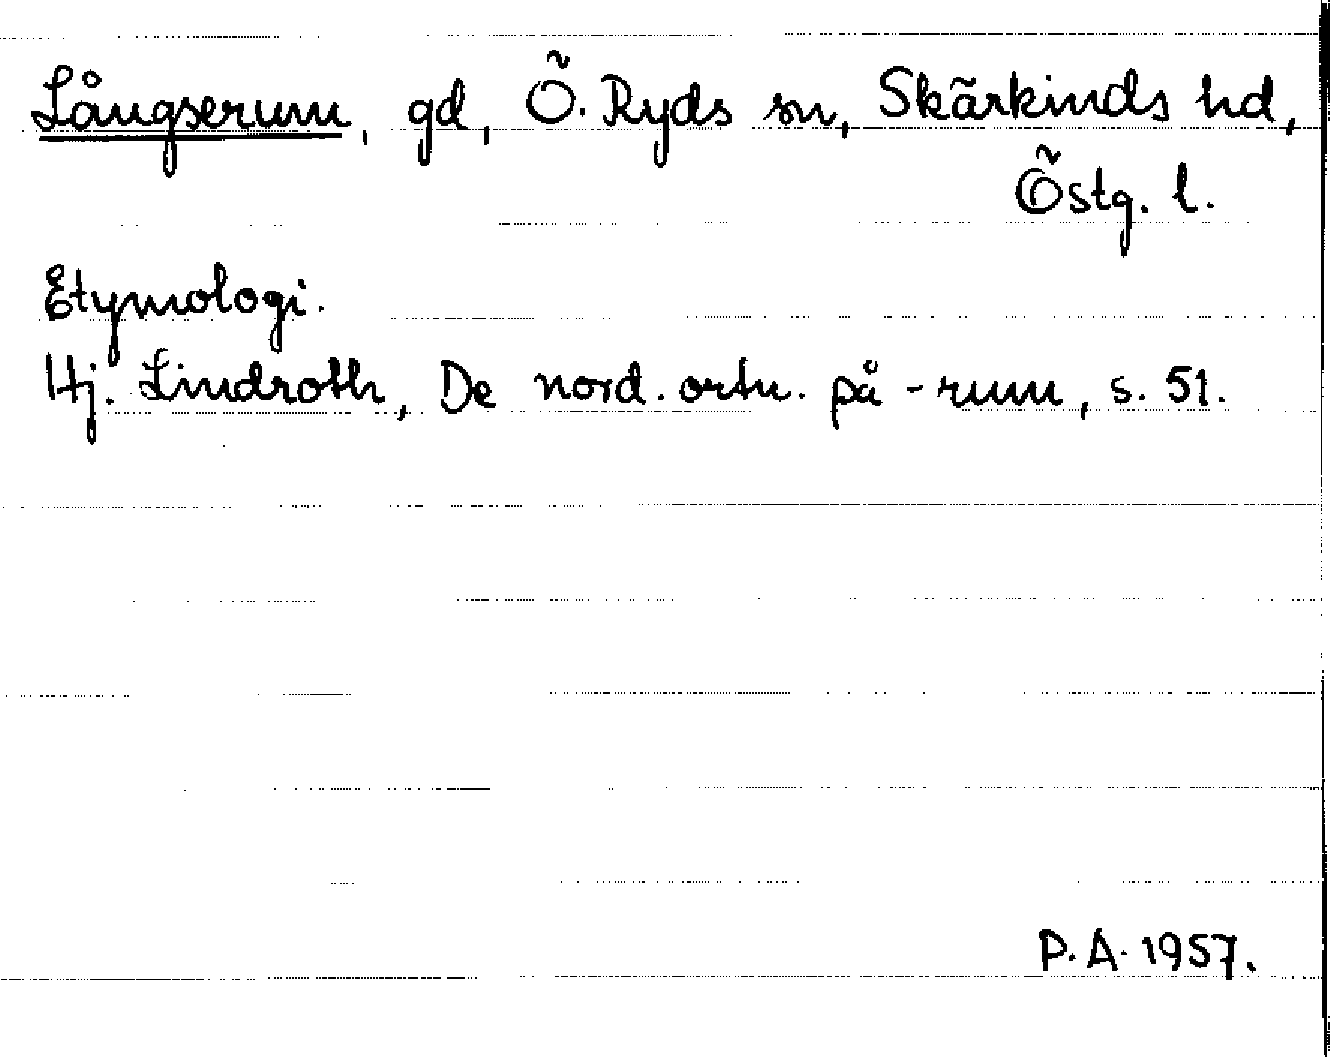 Långserum, gd, Ö. Ryds sn, Skärkinds hd,
Östg. l.
Etymologi.
Hj. Lindroth, De nord. ortn. på -rum, s. 51.
P. A. 1957.